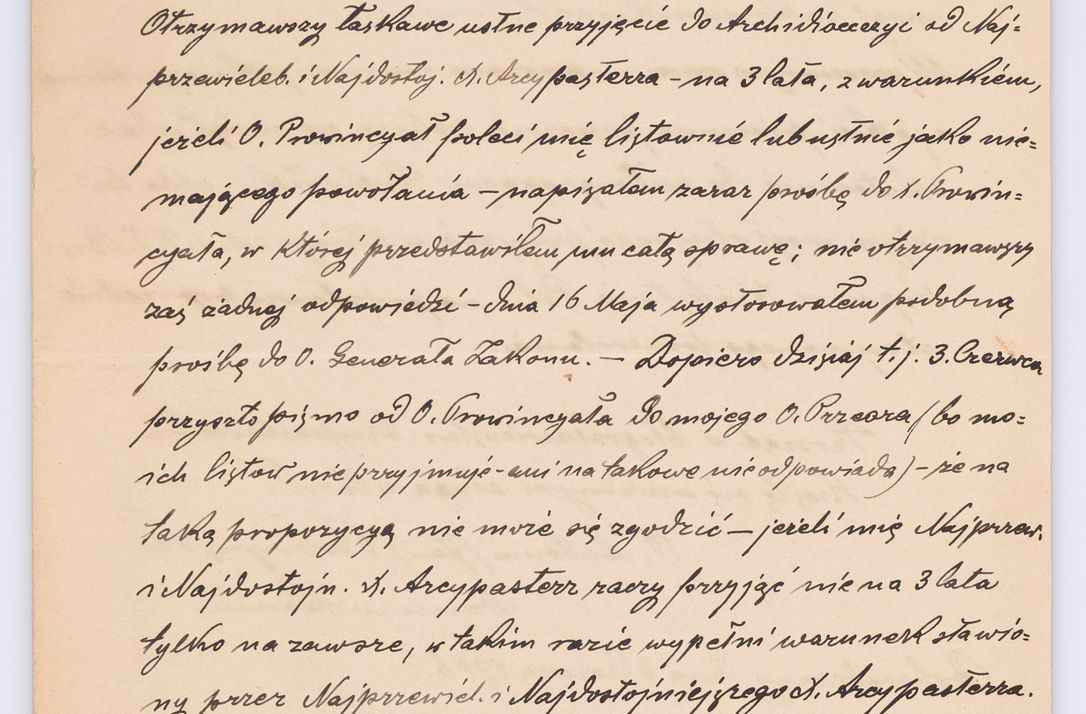 Otrzymawszy łaskawe ustne przyjęcie do Archidiecezyi od Naj-
przewieleb. i Najdostoj. X. Arcypasterza – na 3 lata, z warunkiem,
jeżeli O. Prowincyał poleci mię listownie lub ustnie jako nie-
mającego powołania – napisałem zaraz prośbę do X. Prowin-
cyała, w której przedstawiłem mu całą sprawę; nie otrzymawszy
zaś żadnej odpowiedzi – dnia 16 Maja wystosowałem podobną
prośbę do O. Generała Zakonu. – Dopiero dzisiaj t. j. 3. Czerwca
przyszło pismo od O. Prowincyała do mojego O. Przeora (bo mo-
ich listów nie przyjmuje – ani na takowe nie odpowiada) – że na
taką propozycyą nie może się zgodzić – jeżeli mię Najprzew.
i Najdostojn. X. Arcypasterz raczy przyjąć nie na 3 lata
tylko na zawsze, w takim razie wypełni warunek stawio-
ny przez Najprzewiel. i Najdostojniejszego X. Arcypasterza.